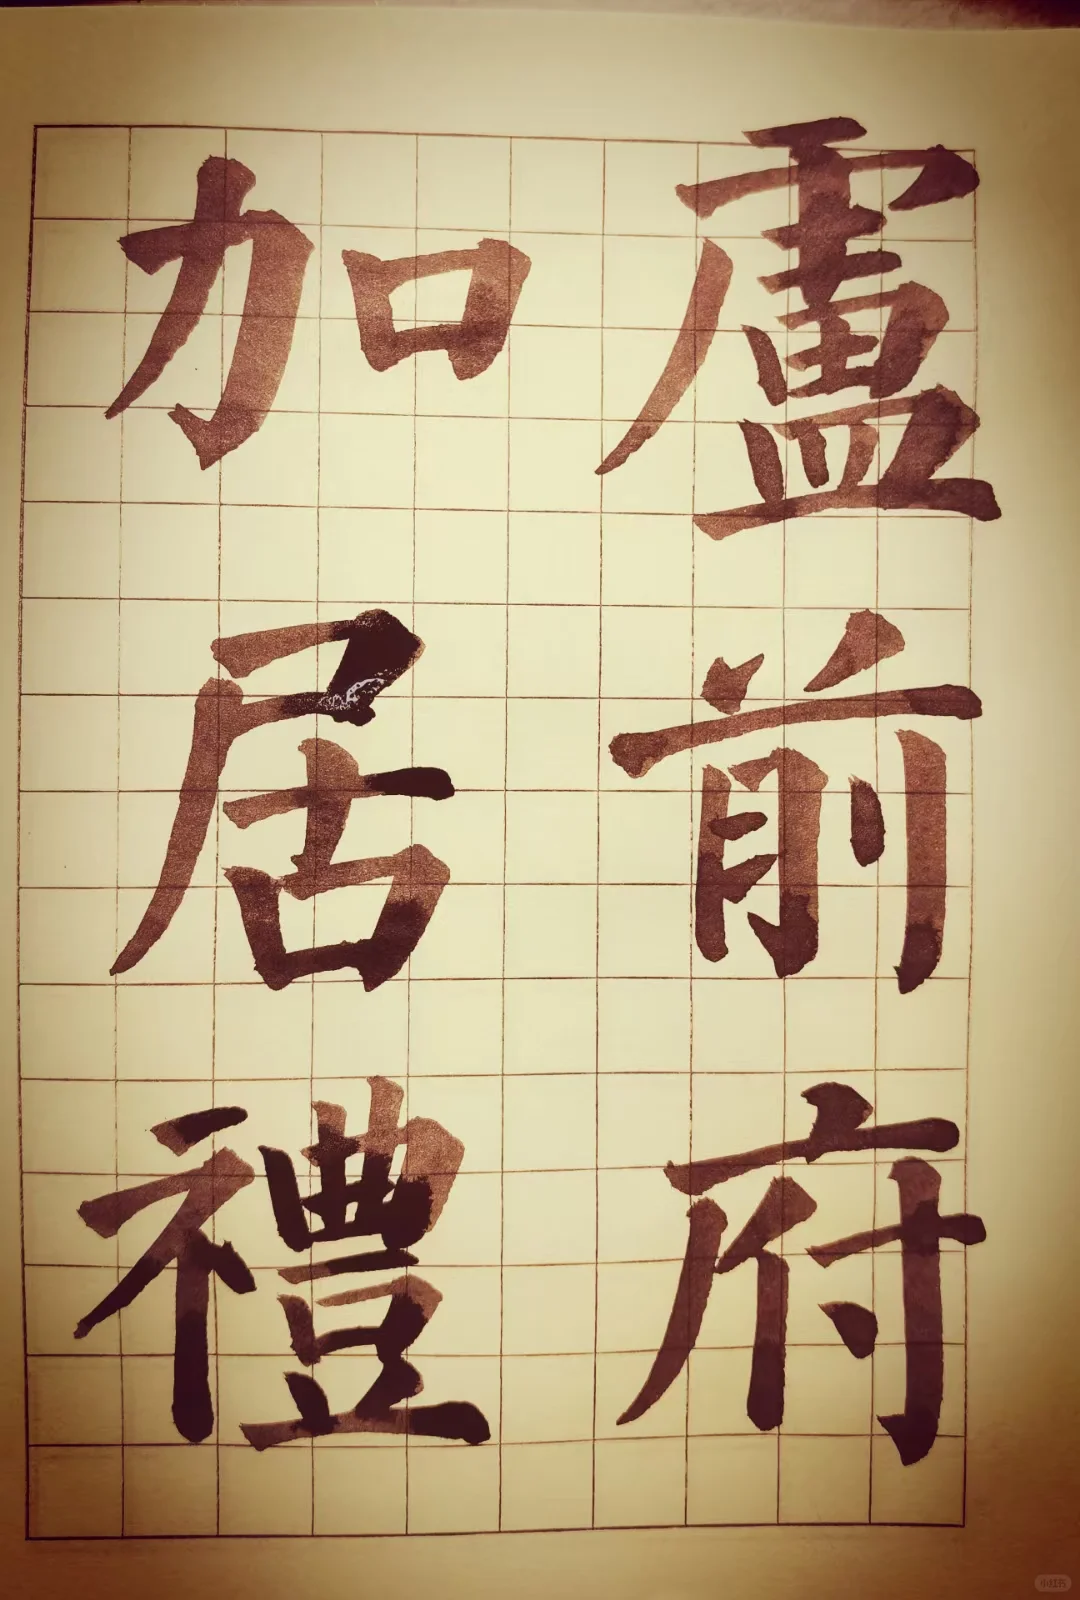 盧前府
加居禮
小红书